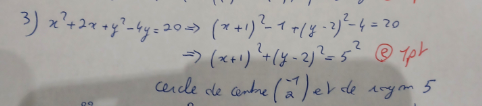 3) x²+2x+y²-4y=20 ⇒ (x+1)²-1+(y-2)²-4=20
⇒ (x+1)²+(y-2)²=5² ② 1pt
cercle de centre (-1 2) et de rayon 5